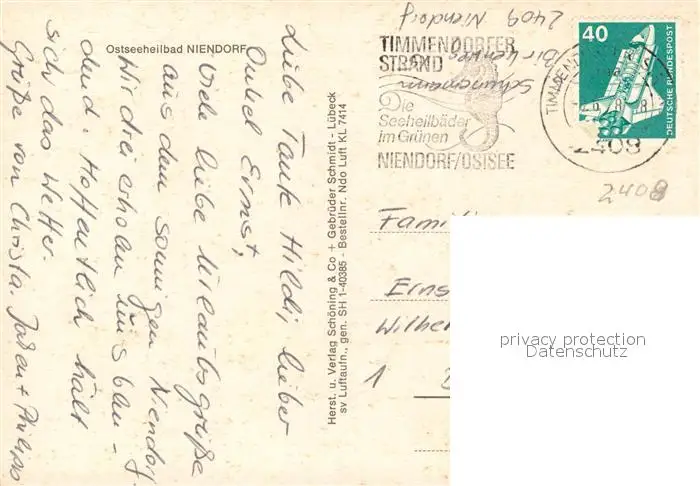 Ostseeheilbad NIENDORF
Liebe Tante Hildi, lieber
Onkel Ernst,
viele liebe Urlaubsgrüße
aus dem sonnigen Niendorf.
Wir drei erholen uns blen-
dend. Hoffentlich hält
sich das Wetter.
Grüße von Christa, Jochen + Philipp
Herst. u. Verlag Schöning & Co + Gebrüder Schmidt - Lübeck
sv Luftaufn., gen. SH 1-40385 - Bestellnr. Ndo Luft KL 7414
2409 Niendorf
TIMMENDORFER
STRAND
Die
Seeheilbäder
im Grünen
NIENDORF/OSTSEE
40
DEUTSCHE BUNDESPOST
2408
2408
Fami
Erns
Wilhe
1
privacy protection
Datenschutz